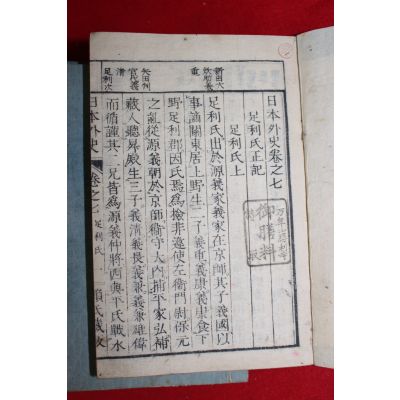 日本外史卷之七
足利氏正記
足利氏上
足利氏出於源義家義家在京師其子義國以
事謫關東居上野生二子義重義康義康食下
野足利郡因氏焉為檢非違使左衛門尉保元
之亂從源義朝於京師衛守大内捕平家弘補
藏人聽昇殿生三子義清義長義兼義兼雄偉
而循謹其二兄皆為源義仲將西與平氏戰水
新田大
炊助義
重
矢田判
官代義
清
足利次
日本外史 卷之七 足利氏 一 頼氏藏版
御膳料